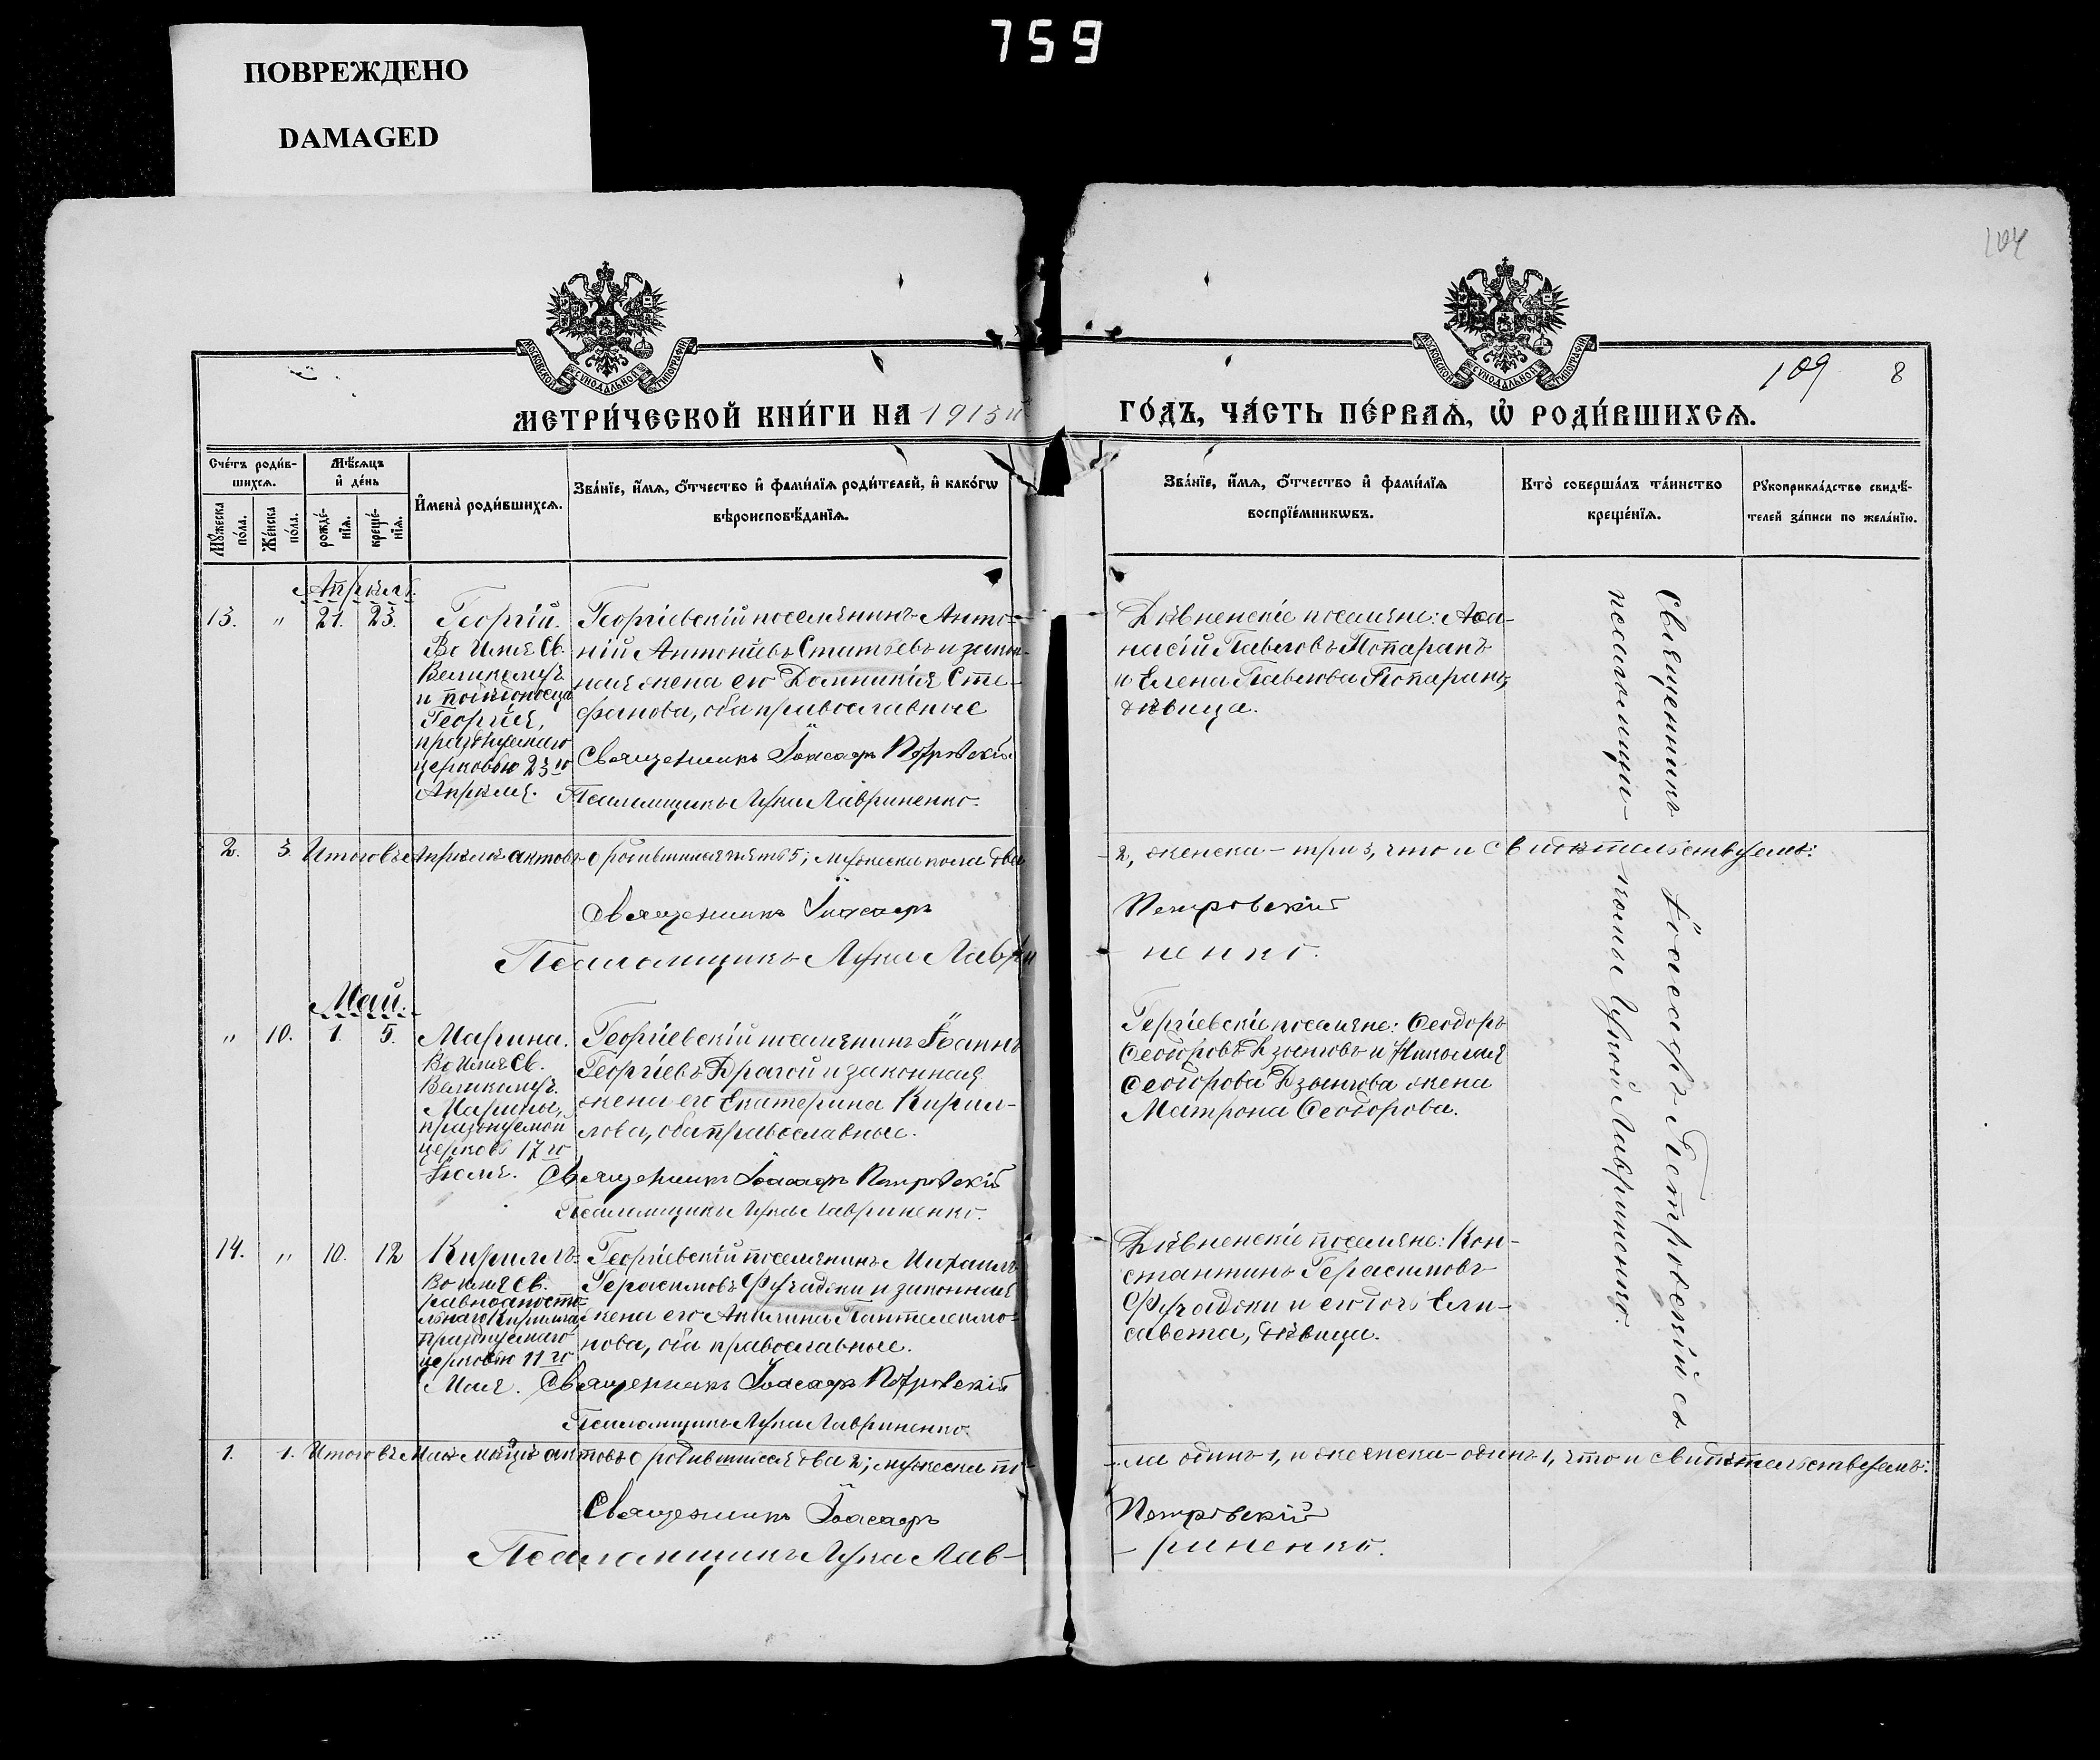 759
ПОВРЕЖДЕНО
DAMAGED
104
109
8
МОСКОВСКОЙ СѴНОДАЛЬНОЙ ТИПОГРАФІИ
МОСКОВСКОЙ СѴНОДАЛЬНОЙ ТИПОГРАФІИ
МЕТРИ́ЧЕСКОЙ КНИ́ГИ НА 1913й
ГО́ДЪ, ЧА́СТЬ ПЕ́РВАѦ, Ѡ҆ РОДИ́ВШИХСѦ.
Сче́тъ роди́в-
шихсѧ.
Мꙋ́жеска по́ла.
Же́нска по́ла.
Мѣ́сѧцъ
и҆ де́нь
рожде́-
нїѧ.
креще́-
нїѧ.
И҆мена̀ роди́вшихсѧ.
Зва́нїе, и҆́мѧ, ѻ҆́тчество и҆ фами́лїѧ роди́телей, и҆ како́гѡ
вѣроисповѣ́данїѧ.
Зва́нїе, и҆́мѧ, ѻ҆́тчество и҆ фами́лїѧ
воспрїе́мникѡвъ.
Кто̀ соверша́лъ та́инство
креще́нїѧ.
Рꙋкоприкла́дство свидѣ́-
телей за́писи по жела́нїю.
Апрѣль.
13. " 21. 23.
Георгій.
Во имя Св.
Великомуч.
и побѣдоносца
Георгія,
празднуемаго
церковью 23го
Апрѣля.
Георгіевскій поселянинъ Анто-
ній Антоніевъ Статьевъ и закон-
ная жена его Домникія Сте-
фанова, оба православные
Священникъ Іоасафъ Петровскій
Псаломщикъ Лука Лавриненко.
Дивненскіе поселяне: Аѳа-
насій Павловъ Попаранъ
и Елена Павлова Попаранъ,
дѣвица.
Священникъ Іоасафъ Петровскій съ
псаломщи-комъ Лукой Лавриненко.
2. 3. Итого въ Апрѣлѣ актовъ о родившихся пять 5; мужеска пола два
2, женска - три 3, что и свидѣтельствуемъ:
Священникъ Іоасафъ
Петровскій
Псаломщикъ Лука Лаври
ненко.
Май.
" 10. 1. 5.
Марина.
Во имя Св.
Великомуч.
Марины,
празднуемой
церковь 17го
Іюля.
Георгіевскій поселянинъ Іоаннъ
Георгіевъ Драгой и законная
жена его Екатерина Кирил-
лова, оба православные.
Священникъ Іоасафъ Петровскій
Псаломщикъ Лука Лавриненко.
Гергіевскіе поселяне: Ѳеодоръ
Ѳеодоровъ Дзынговъ и Николая
Ѳеодорова Дзынгова жена
Матрона Ѳеодорова.
14. " 10. 12
Кириллъ.
Во имя Св.
равноапосто-
льнаго Кирилла
празднуемаго
церковью 11го
Мая.
Георгіевскій поселянинъ Михаилъ
Герасимовъ Фучаджи и законная
жена его Акилина Пантелеимо-
нова, оба православные.
Священникъ Іоасафъ Петровскій
Псаломщикъ Лука Лавриненко.
Дивненскіе поселяне: Кон-
стантинъ Герасимовъ
Фучаджи и его дочь Ели-
савета, дѣвица.
1. 1. Итого въ Маѣ мѣцѣ актовъ о родившихся два 2; мужеска по-
ла одинъ 1, и женска - одинъ 1, что и свидѣтельствуемъ:
Священникъ Іоасафъ
Петровскій
Псаломщикъ Лука Лав-
риненко.